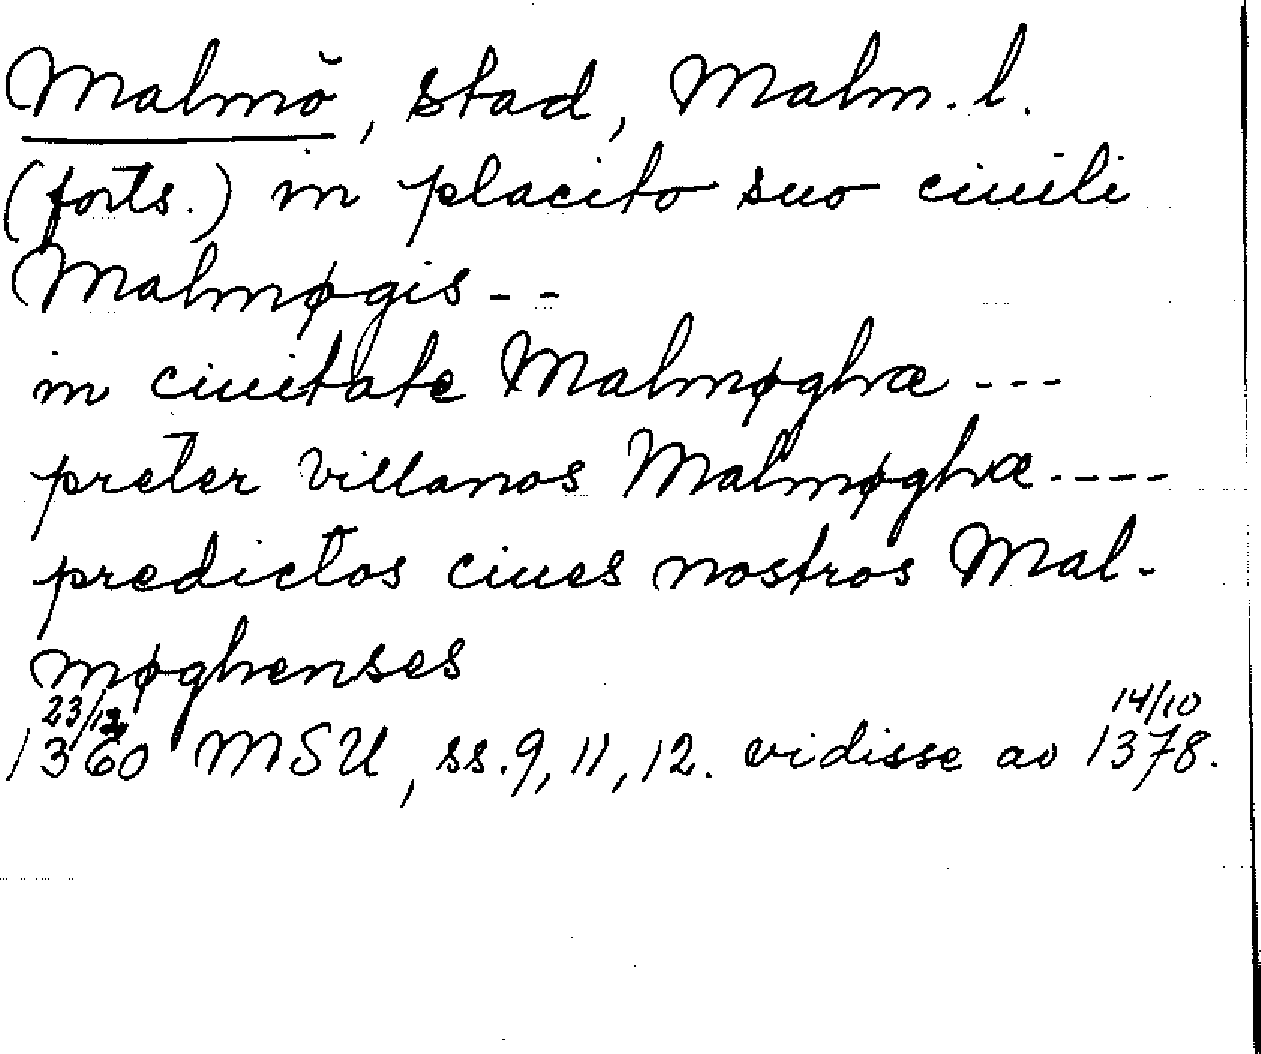 Malmö, stad, Malm. l.
(forts.) in placito suo ciuili
Malmøgis - -
in ciuitate Malmøghæ - - -
preter villanos Malmøghæ - - - -
predictos ciues nostros Mal-
møghenses
23/12 14/10
1360 MSU, ss. 9, 11, 12. vidisse ao 1378.